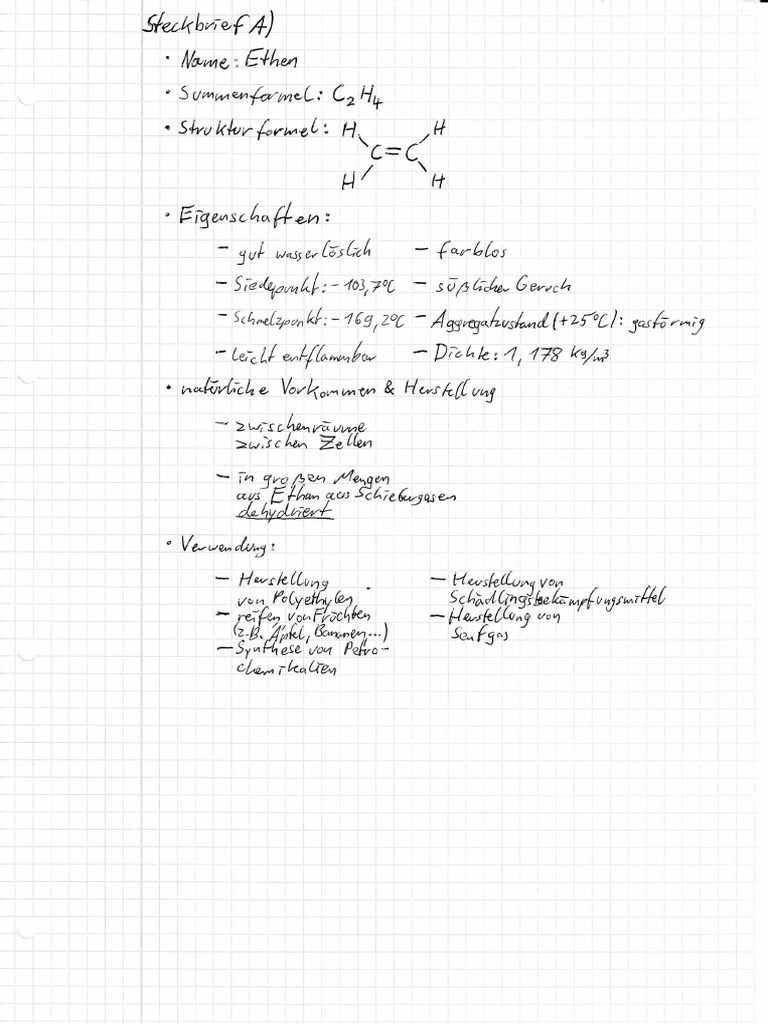 Steckbrief A)
• Name: Ethen
• Summenformel: C₂H₄
• Strukturformel: H H
C=C
H H
• Eigenschaften:
– gut wasserlöslich – farblos
– Siedepunkt: -103,7°C – süßlicher Geruch
– Schmelzpunkt: -169,2°C – Aggregatzustand (+25°C): gasförmig
– leicht entflammbar – Dichte: 1,178 kg/m³
• natürliche Vorkommen & Herstellung
– zwischenräume
zwischen Zellen
– in großen Mengen
aus Ethan aus Schiefergasen
dehydriert
• Verwendung:
– Herstellung
von Polyethylen
– reifen von Früchten
(z.B. Äpfel, Bananen...)
– Synthese von Petro-
chemikalien
– Herstellung von
Schädlingsbekämpfungsmittel
– Herstellung von
Senfgas